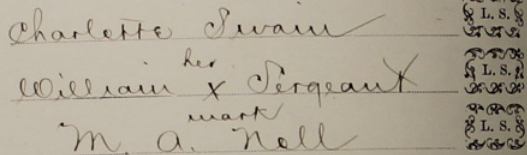 Charlotte Swain L. S.
her
William x Sergeant L. S.
mark
M. A. Noll L. S.